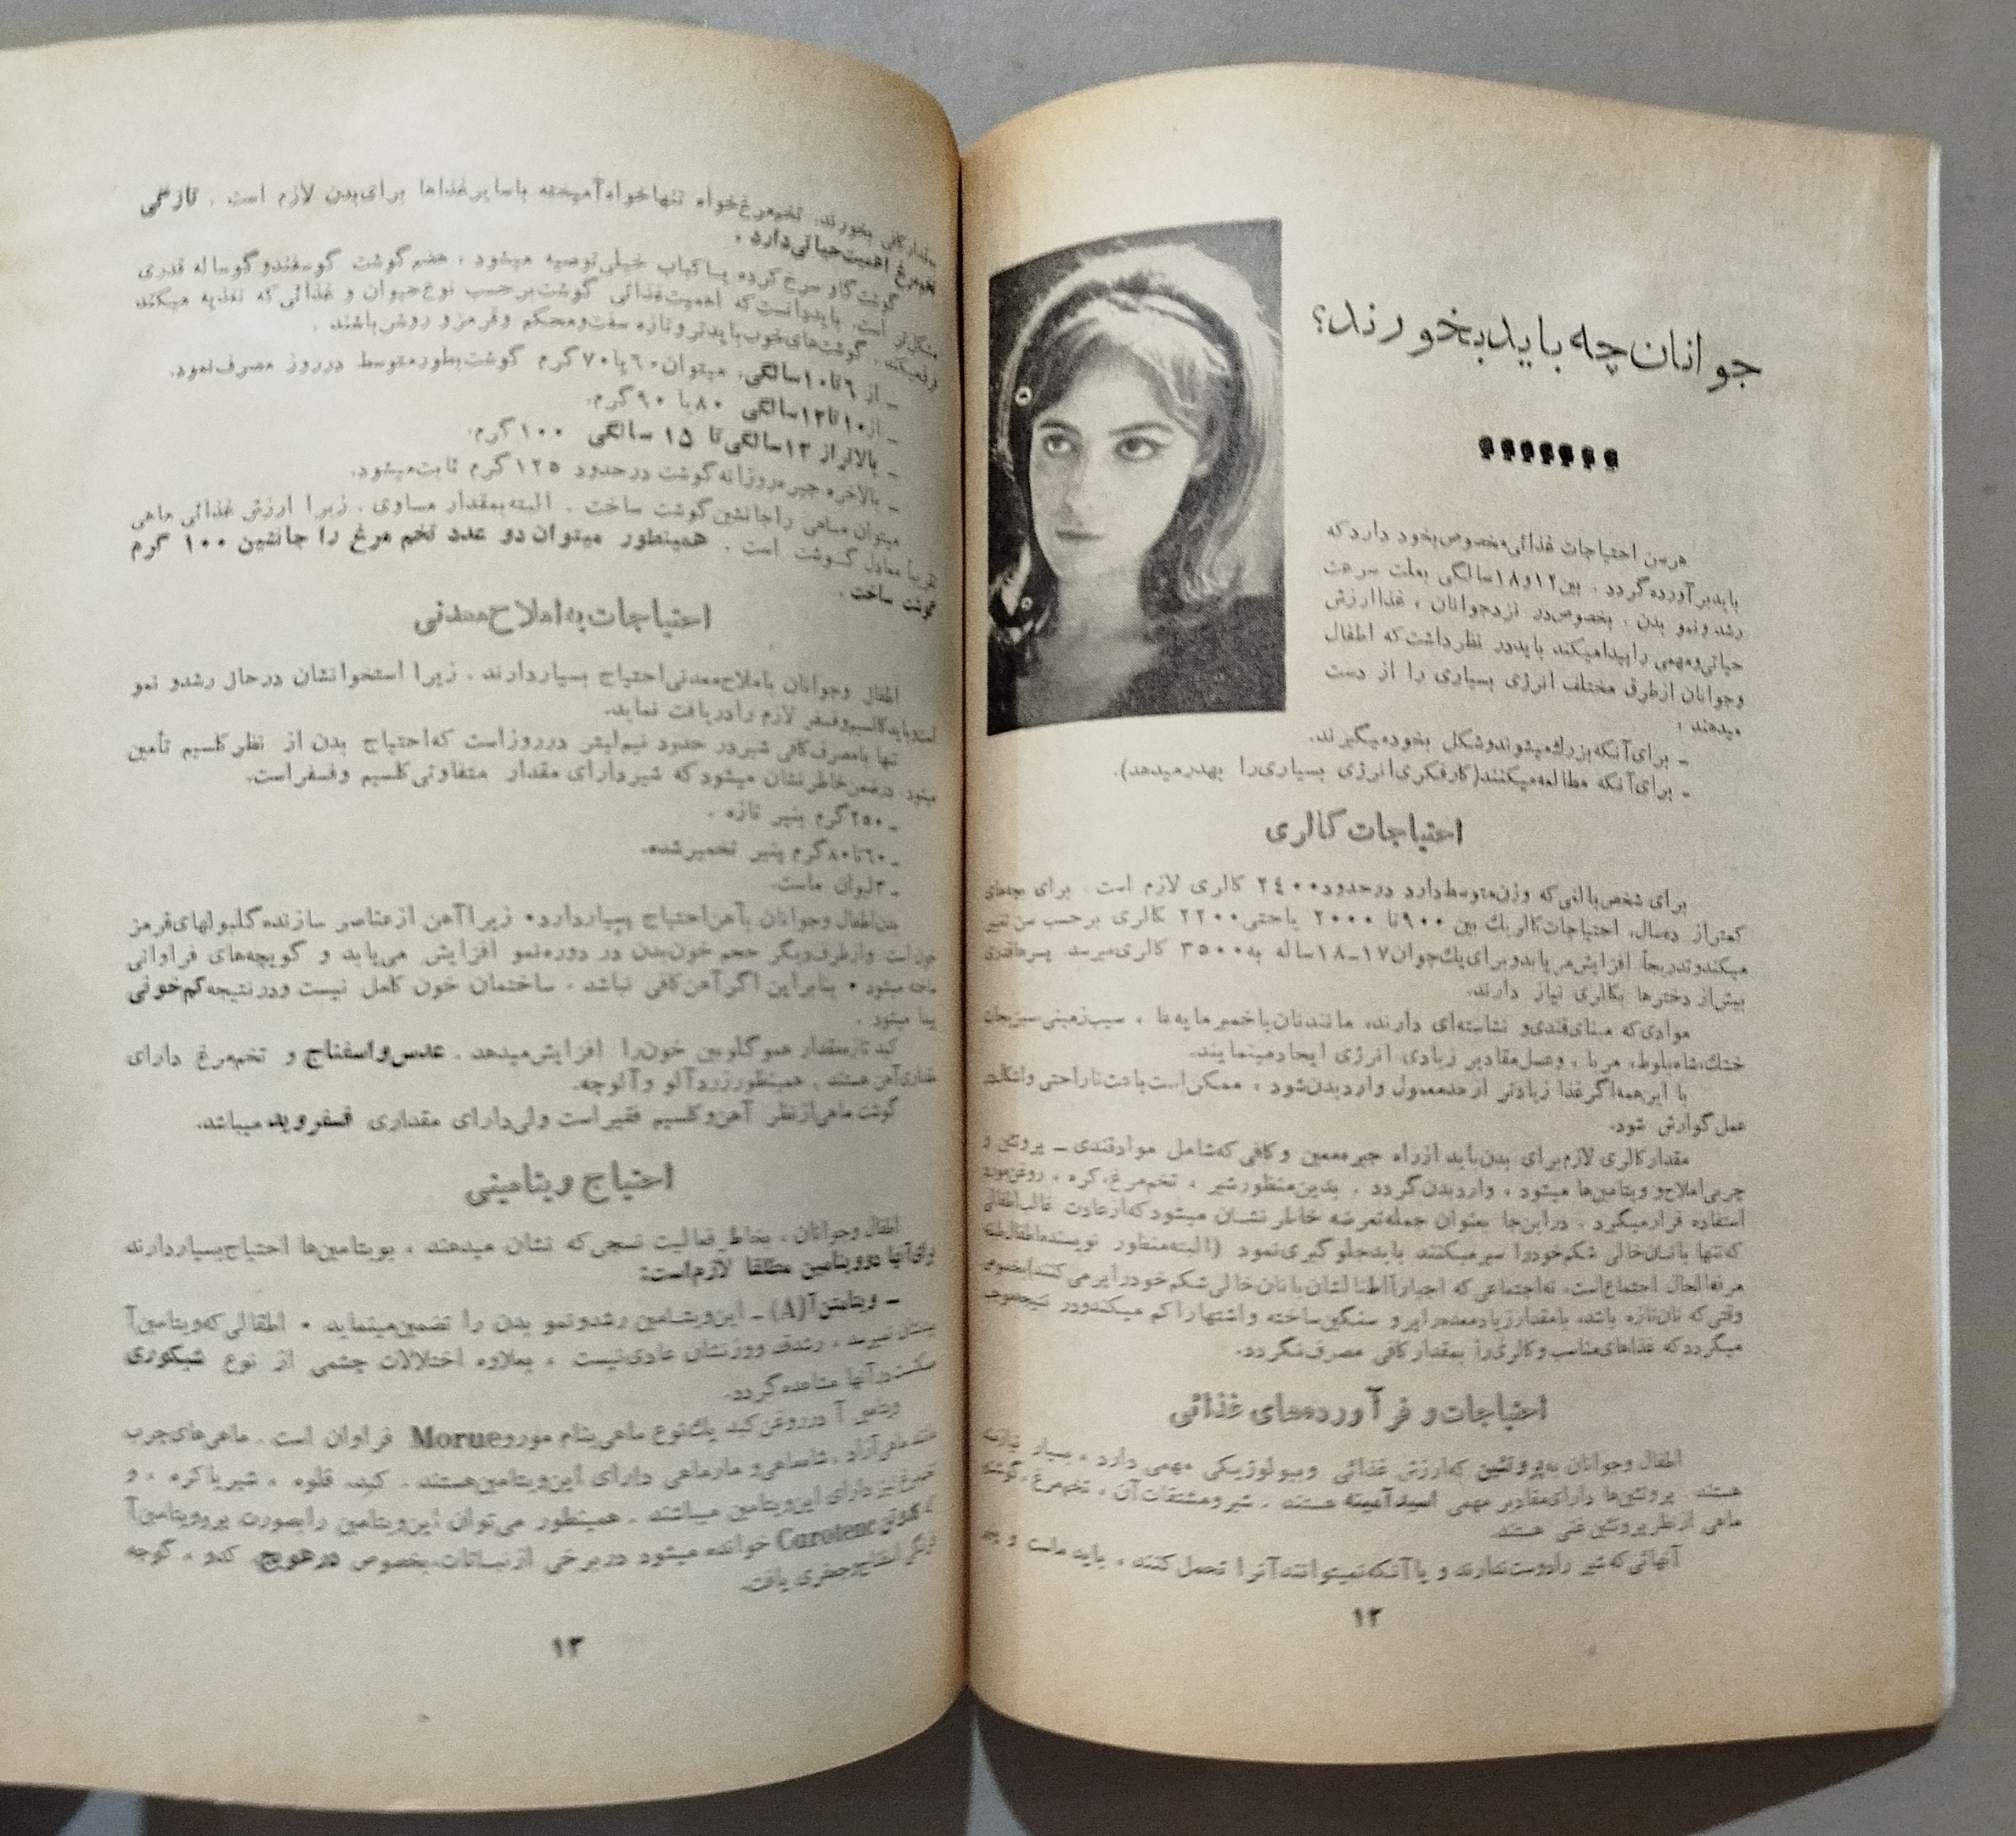 جوانان چه باید بخورند؟
هرسن احتیاجات غذائی مخصوص بخود دارد که
باید بر آورده گردد . بین ۱۲ و ۱۸ سالگی بعلت سرعت
رشد و نمو بدن ، بخصوص در نزد جوانان ، غذا ارزش
حیاتی و مهمی را پیدا میکند باید در نظر داشت که اطفال
و جوانان از طرق مختلف انرژی بسیاری را از دست
میدهند :
ـ برای آنکه بزرك میشوند و شکل بخود میگیرند.
ـ برای آنکه مطالعه میکنند (کار فکری انرژی بسیاری را بهدر میدهد).
احتیاجات کالری
برای شخص بالغی که وزن متوسط دارد در حدود ۲٤۰۰ کالری لازم است . برای بچه‌های
کمتر از ده سال، احتیاجات کالریك بین ۹۰۰ تا ۲۰۰۰ یا حتی ۲۲۰۰ کالری بر حسب سن تغییر
میکند و تدریجاً افزایش می‌یابد و برای یك جوان ۱۷ـ۱۸ ساله به ۳۵۰۰ کالری میرسد پسرها قدری
بیش از دخترها بکالری نیاز دارند.
موادی که مبنای قندی و نشاسته‌ای دارند، مانند نان با خمیر مایه ، سیب زمینی سبزیجات
خشك، شاه بلوط، مربا ، و عسل مقادیر زیادی انرژی ایجاد مینمایند.
با این همه اگر غذا زیادتر از حد معمول وارد بدن شود ، ممکن است باعث ناراحتی و اشکال در
عمل گوارش شود.
مقدار کالری لازم برای بدن باید از راه جیره معین و کافی که شامل مواد قندی ـ پروتئین و
چربی املاح و ویتامین‌ها میشود ، وارد بدن گردد . بدین منظور شیر ، تخم مرغ، کره ، روغن مورد
استفاده قرار میگیرد . در این جا بعنوان جمله تعرضه خاطر نشان میشود که از عادت غالب اطفالی
که تنها با نان خالی شکم خود را سیر میکنند باید جلوگیری نمود (البته منظور نویسنده اطفال طبقه
مرفه الحال اجتماع است، نه اجتماعی که اجباراً اطفالشان با نان خالی شکم خود را پر می کنند) بخصوص
وقتی که نان تازه باشد، با مقدار زیاد معده را پر و سنگین ساخته و اشتها را کم میکند و در نتیجه موجب
میگردد که غذاهای مناسب و کالری‌زا بمقدار کافی مصرف نگردد.
احتیاجات و فرآورده‌های غذائی
اطفال و جوانان به پروتئین که ارزش غذائی و بیولوژیکی مهمی دارد ، بسیار نیازمند
هستند پروتئین‌ها دارای مقادیر مهمی اسید آمینه هستند . شیر و مشتقات آن ، تخم مرغ ، گوشت
ماهی از نظر پروتئین غنی هستند.
آنهائی که شیر را دوست ندارند و یا آنکه نمیتوانند آنرا تحمل کنند ، باید ماست و پنیر
۱۲
بمقدار کافی بخورند. تخم مرغ خواه تنها خواه آمیخته با سایر غذاها برای بدن لازم است . تازگی
تخم مرغ اهمیت حیاتی دارد .
گوشت گاو سرخ کرده یا کباب خیلی توصیه میشود ، هضم گوشت گوسفند و گوساله قدری
مشکل‌تر است، باید دانست که اهمیت غذائی گوشت بر حسب نوع حیوان و غذائی که تغذیه میکند
فرق میکند . گوشت‌های خوب باید تر و تازه سفت و محکم و قرمز و روشن باشند .
ـ از ٦ تا ۱۰ سالگی، میتوان ٦۰ یا ۷۰ گرم گوشت بطور متوسط در روز مصرف نمود.
ـ از ۱۰ تا ۱۲ سالگی ۸۰ یا ۹۰ گرم.
ـ بالاتر از ۱۲ سالگی تا ۱۵ سالگی ۱۰۰ گرم.
ـ بالاخره جیره روزانه گوشت در حدود ۱۲۵ گرم ثابت میشود.
میتوان ماهی را جانشین گوشت ساخت . البته بمقدار مساوی ، زیرا ارزش غذائی ماهی
تقریباً معادل گوشت است . همینطور میتوان دو عدد تخم مرغ را جانشین ۱۰۰ گرم
گوشت ساخت .
احتیاجات به املاح معدنی
اطفال و جوانان باملاح معدنی احتیاج بسیار دارند . زیرا استخوانشان در حال رشد و نمو
است و باید کلسیم و فسفر لازم را دریافت نماید.
تنها با مصرف کافی شیر در حدود نیم لیتر در روز است که احتیاج بدن از نظر کلسیم تأمین
میشود در ضمن خاطر نشان میشود که شیر دارای مقدار متفاوتی کلسیم و فسفر است.
ـ ۲۵۰ گرم پنیر تازه .
ـ ٦۰ تا ۸۰ گرم پنیر تخمیر شده.
ـ ۳ لیوان ماست.
بدن اطفال و جوانان بآهن احتیاج بسیار دارد ، زیرا آهن از عناصر سازنده گلبولهای قرمز
خون است و از طرف دیگر حجم خون بدن در دوره نمو افزایش می‌یابد و گویچه‌های فراوانی
ساخته میشود . بنابراین اگر آهن کافی نباشد ، ساختمان خون کامل نیست و در نتیجه کم خونی
پیدا میشود .
کبد تازه مقدار هموگلوبین خون را افزایش میدهد . عدس و اسفناج و تخم مرغ دارای
مقداری آهن هستند . همینطور زرد آلو و آلوچه.
گوشت ماهی از نظر آهن و کلسیم فقیر است ولی دارای مقداری فسفر و ید میباشد.
احتیاج ویتامینی
اطفال و جوانان ، بخاطر فعالیت نسجی که نشان میدهند ، بویتامین‌ها احتیاج بسیار دارند
برای آنها دو ویتامین مطلقا لازم است:
ـ ویتامین آ (A) ـ این ویتامین رشد و نمو بدن را تضمین مینماید . اطفالی که ویتامین آ
ببدنشان نمیرسد ، رشد قد و وزنشان عادی نیست ، بعلاوه اختلالات چشمی از نوع شبکوری
ممکنست در آنها مشاهده گردد.
ویتامین آ در روغن کبد یك نوع ماهی بنام مورو Morue فراوان است . ماهی‌های چرب
مانند ماهی آزاد ، شاه‌ماهی و مارماهی دارای این ویتامین هستند . کبد، قلوه ، شیر یا کره ، و
تخم مرغ نیز دارای این ویتامین میباشند . همینطور می‌توان این ویتامین را بصورت پروویتامین آ
که کاروتن Carotene خوانده میشود در برخی از نباتات، بخصوص در هویج، کدو ، گوجه
فرنگی اسفناج و جعفری یافت.
۱۳